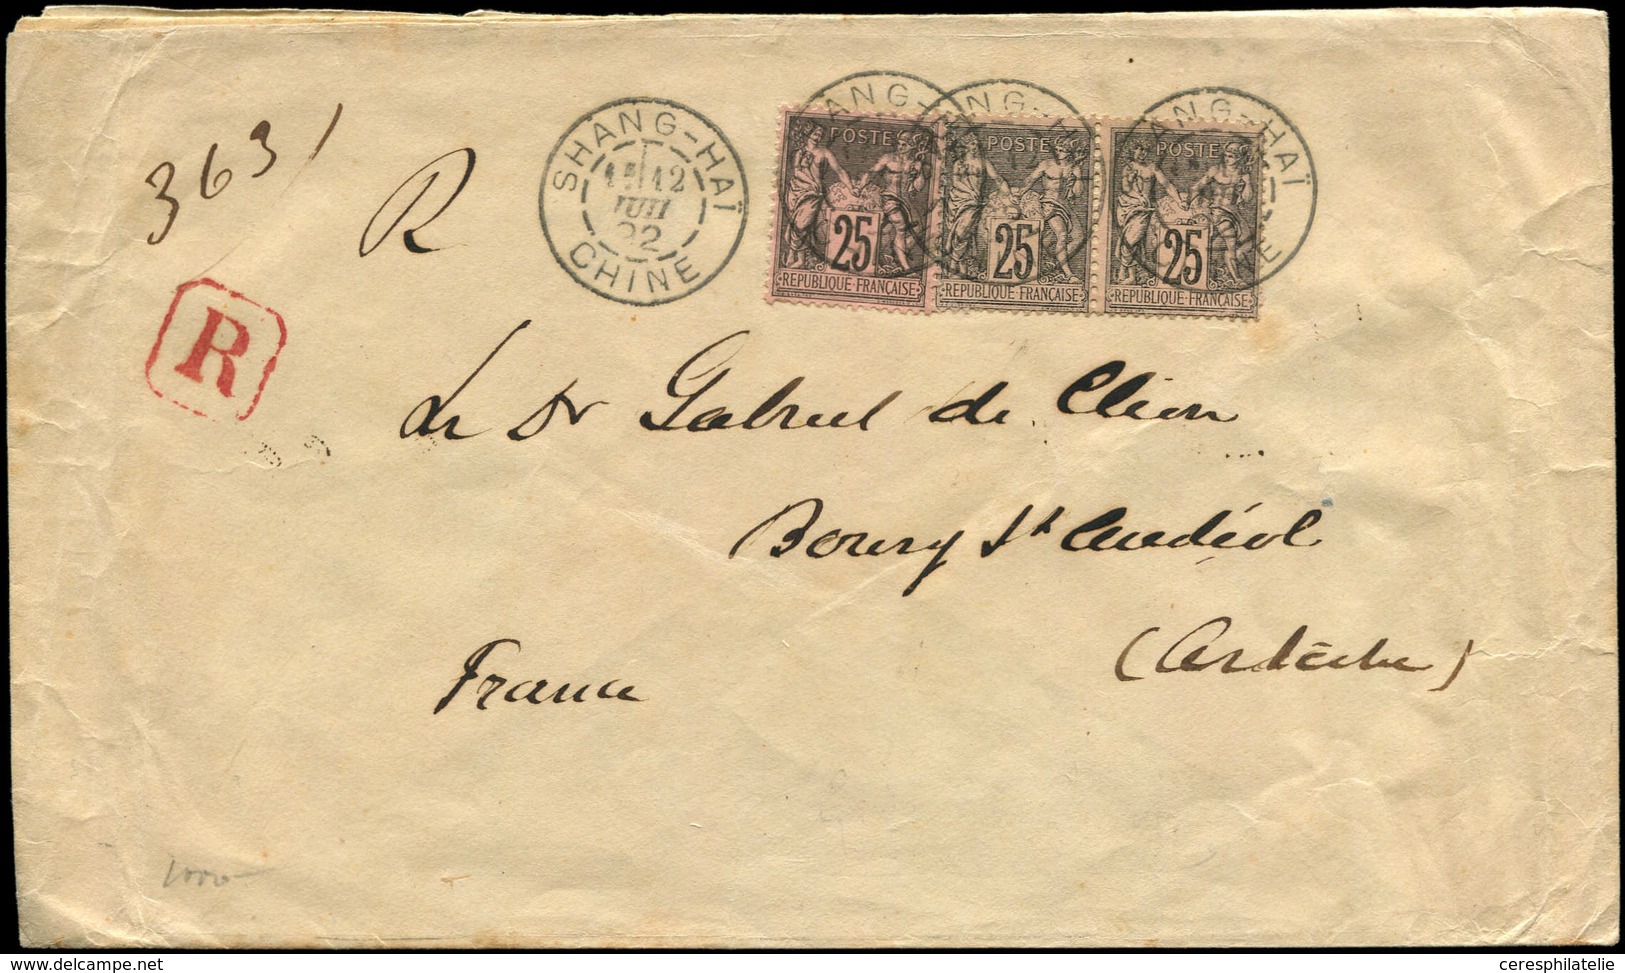 3631
R
SHANG-HAÏ
12
JUIN
92
CHINE
ANG-HAÏ
NE
POSTE
25
REPUBLIQUE FRANÇAISE
POSTE
25
REPUBLIQUE FRANÇAISE
POSTE
25
REPUBLIQUE FRANÇAISE
R
Le Dr Gabriel de Clion
Bourg St Andéol
(Ardèche)
France
1000
www.delcampe.net
ceresphilatelie